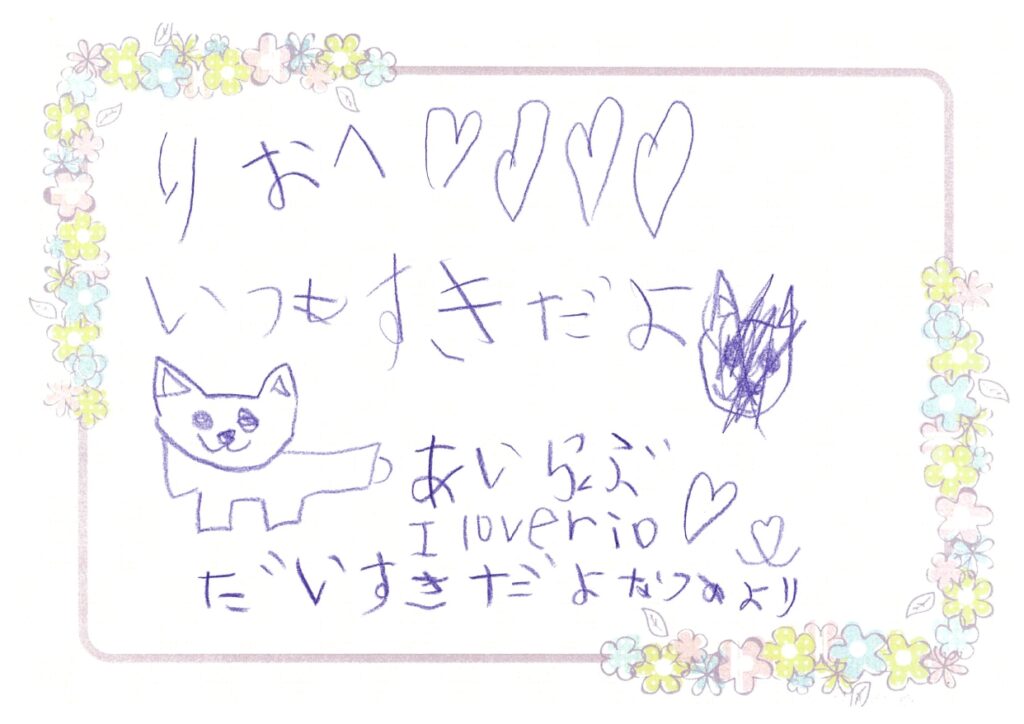 りおへ♡♡♡♡
いつもすきだよ
あいらぶ
I loverio♡♡
だいすきだよなつめより